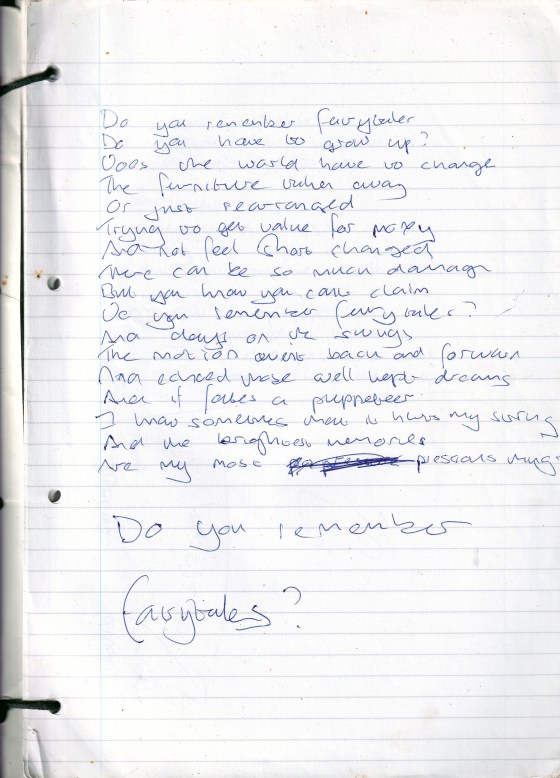 Do you remember fairytales
Do you have to grow up?
Does the world have to change
The furniture taken away
Or just rearranged
Trying to get value for money
And not feel short changed
There can be so much damage
But you know you can't claim
Do you remember fairytales?
And days on the swings
The motion went back and forward
And echoed those well kept dreams
And if fates a puppeteer
I know sometimes that it hurts my string
And the brightest memories
Are my most pressious things
Do you remember
Fairytales?